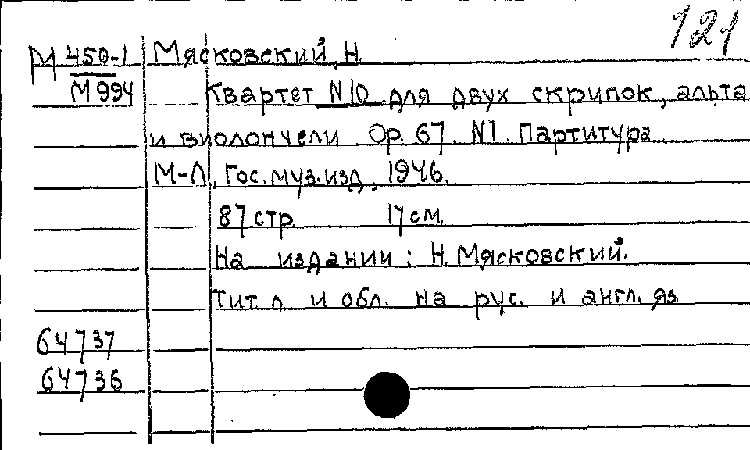 121
М 450-1 Мясковский, Н.
М 994 Квартет N 10 для двух скрипок, альта
и виолончели Ор. 67. N1. Партитура
М-Л, Гос. муз. изд, 1946.
87 стр 17 см.
На издании: Н. Мясковский.
Тит л и обл. на рус. и англ. яз
64737
64736